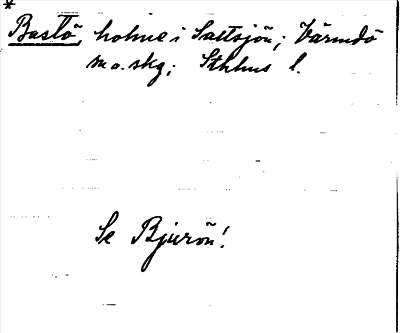 *
Bastö, holme i Saltsjön; Värmdö
m.o. skg; Sthlms l.
Se Bjurön!